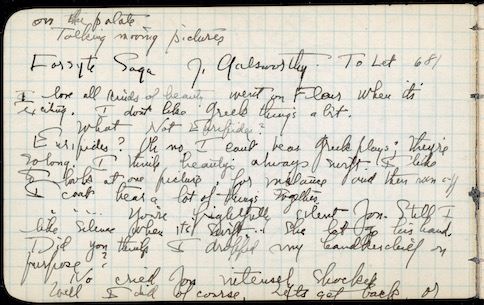 on the palate
Talking moving pictures
Forsyte Saga J. Galsworthy. To Let 681
I love all kinds of beauty went on Fleur when it's
exciting. I don't like Greek things a bit.
What Not Euripides?
Euripides? Oh no I can't bear Greek plays; they're
so long. I think beauty's always swift. I like
to look at one picture for instance and then run off
I can't bear a lot of things together.
.... You're frightfully silent Jon. Still I
like silence when it's swift... She let go his hand.
Did you think I dropped my handkerchief on
purpose?
No cried Jon intensely shocked
Well I did of course. Let's get back or